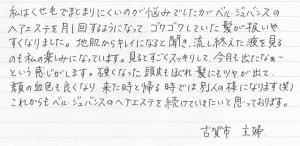 私はくせ毛でまとまりにくいのが悩みでしたがベル・ジュバンスの
ヘアエステを月1回するようになって ゴワゴワしていた髪が扱いや
すくなりました。地肌からキレイになると聞き、流し終えた液を見る
のも私の楽しみになっています。見るとすごくスッキリして、今日も出たなぁ〜
という感じがします。硬くなった頭皮もほぐれ髪にもツヤが出て、
顔の血色も良くなり、来た時と帰る時では別人の様になります(笑)
これからもベル・ジュバンスのヘアエステを続けていきたいと思っております。
古賀市 主婦